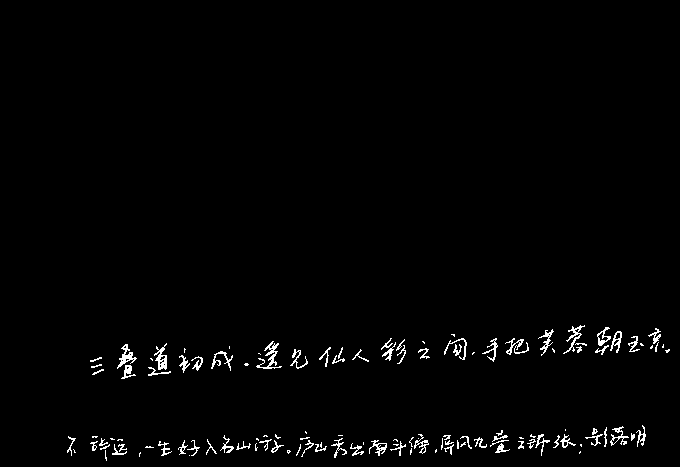 三叠道初成。遥见仙人彩之间,手把芙蓉朝玉京。
不辞远,一生好入名山游。庐山秀出南斗傍,屏风九叠云锦张;影落明